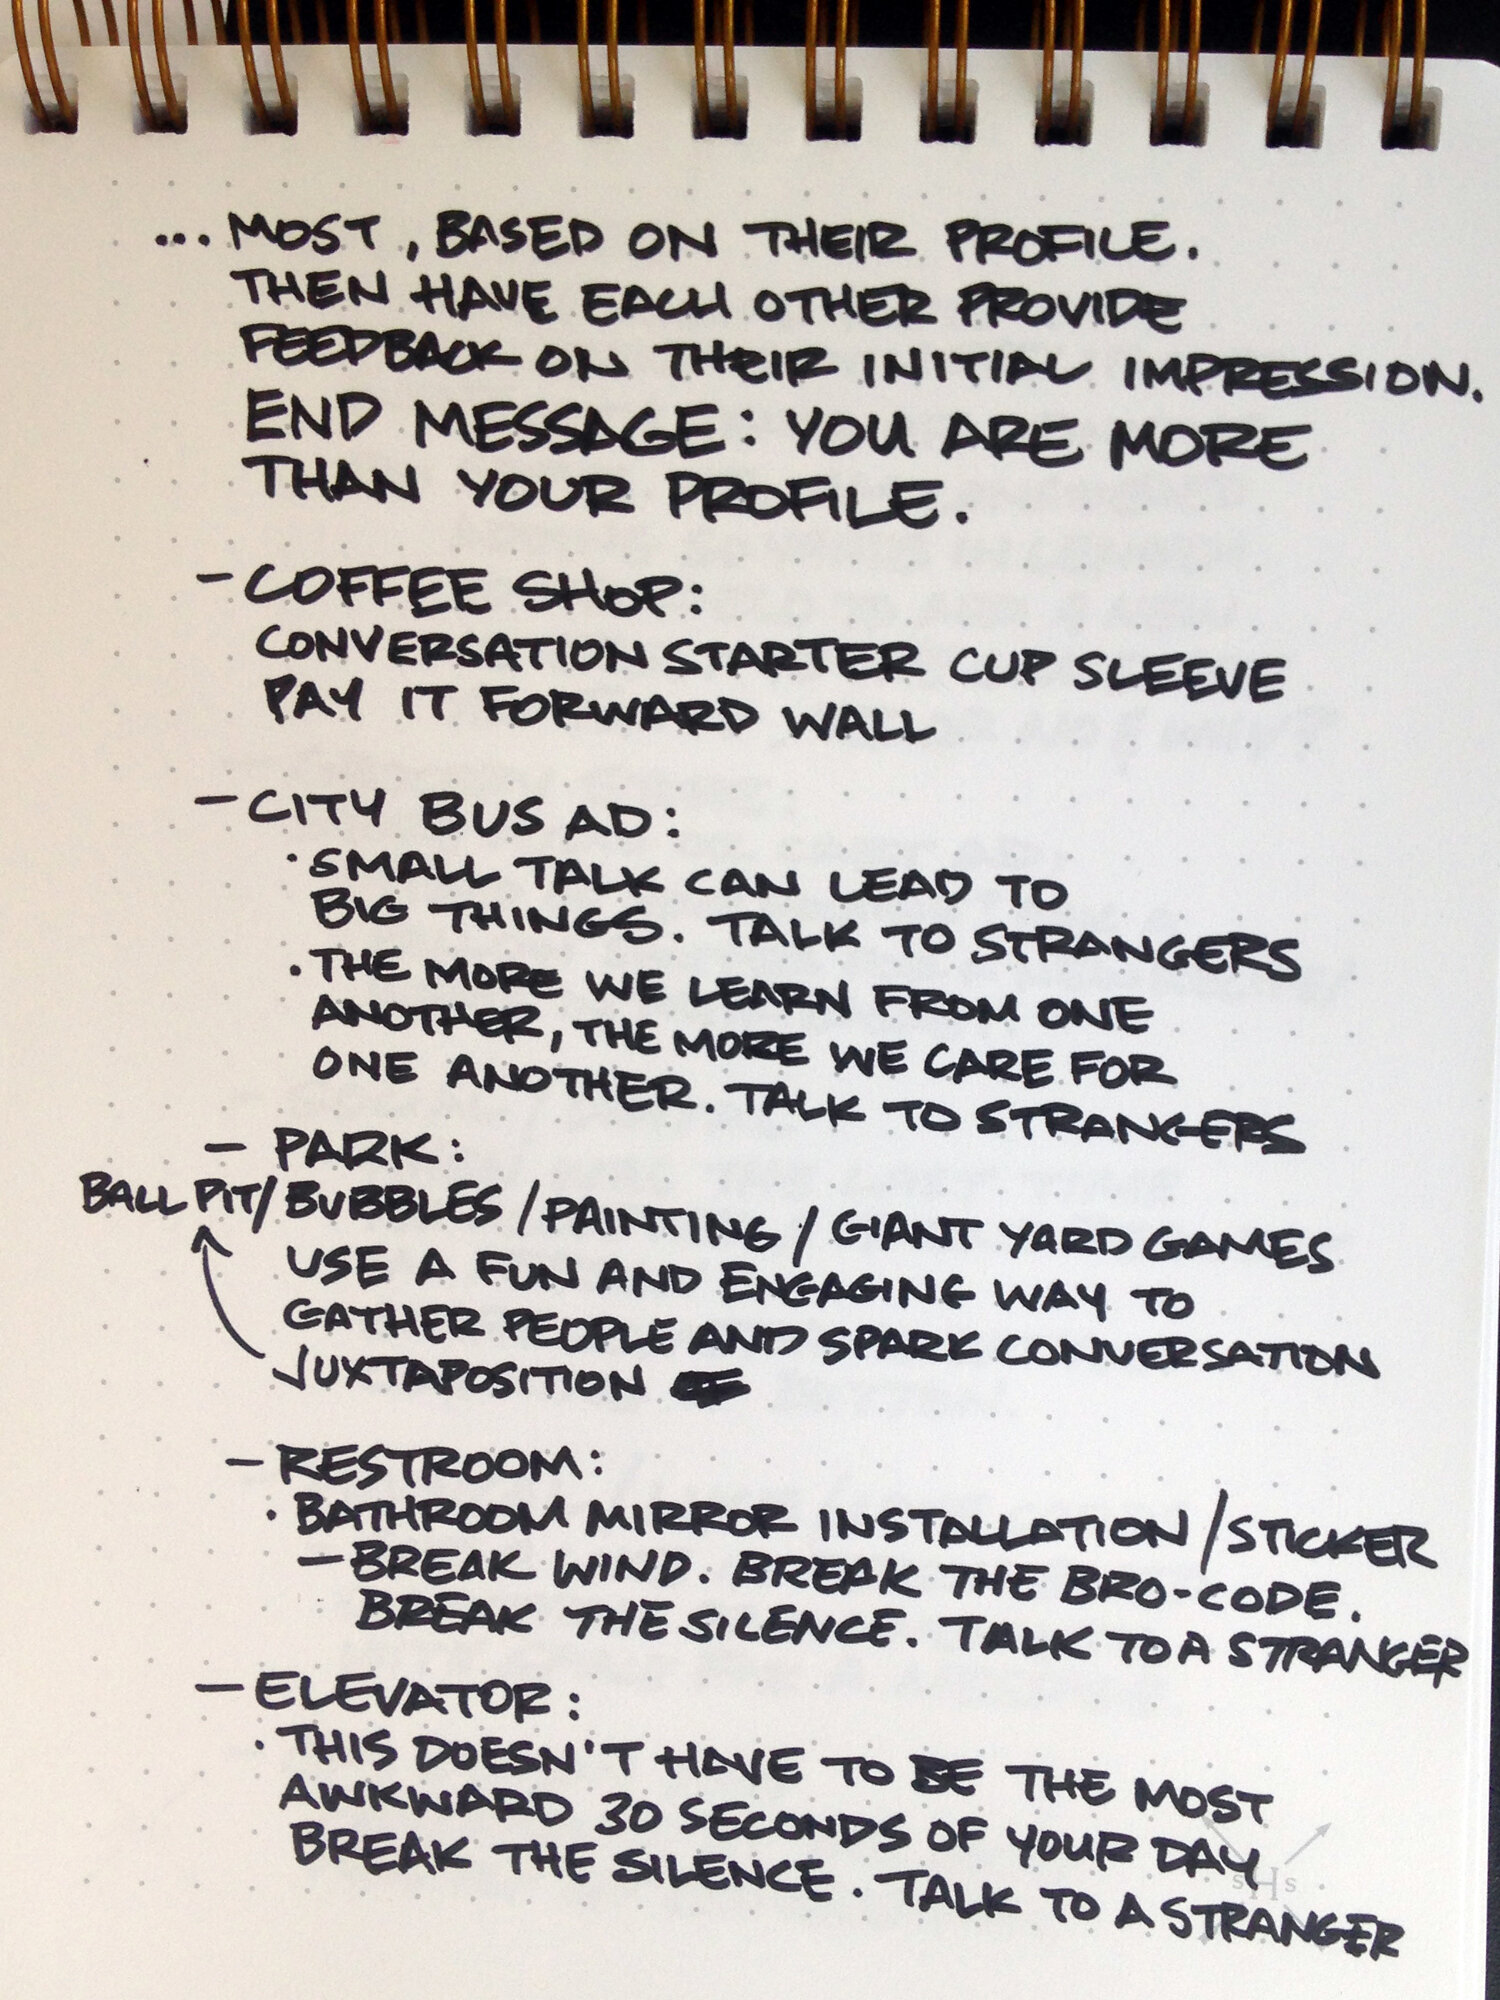 ... MOST, BASED ON THEIR PROFILE.
THEN HAVE EACH OTHER PROVIDE
FEEDBACK ON THEIR INITIAL IMPRESSION.
END MESSAGE: YOU ARE MORE
THAN YOUR PROFILE.
- COFFEE SHOP:
CONVERSATION STARTER CUP SLEEVE
PAY IT FORWARD WALL
- CITY BUS AD:
· SMALL TALK CAN LEAD TO
BIG THINGS. TALK TO STRANGERS
· THE MORE WE LEARN FROM ONE
ANOTHER, THE MORE WE CARE FOR
ONE ANOTHER. TALK TO STRANGERS
- PARK:
BALL PIT/BUBBLES/PAINTING/GIANT YARD GAMES
USE A FUN AND ENGAGING WAY TO
GATHER PEOPLE AND SPARK CONVERSATION
JUXTAPOSITION
- RESTROOM:
· BATHROOM MIRROR INSTALLATION/STICKER
- BREAK WIND. BREAK THE BRO-CODE.
BREAK THE SILENCE. TALK TO A STRANGER
- ELEVATOR:
· THIS DOESN'T HAVE TO BE THE MOST
AWKWARD 30 SECONDS OF YOUR DAY
BREAK THE SILENCE. TALK TO A STRANGER
sHs